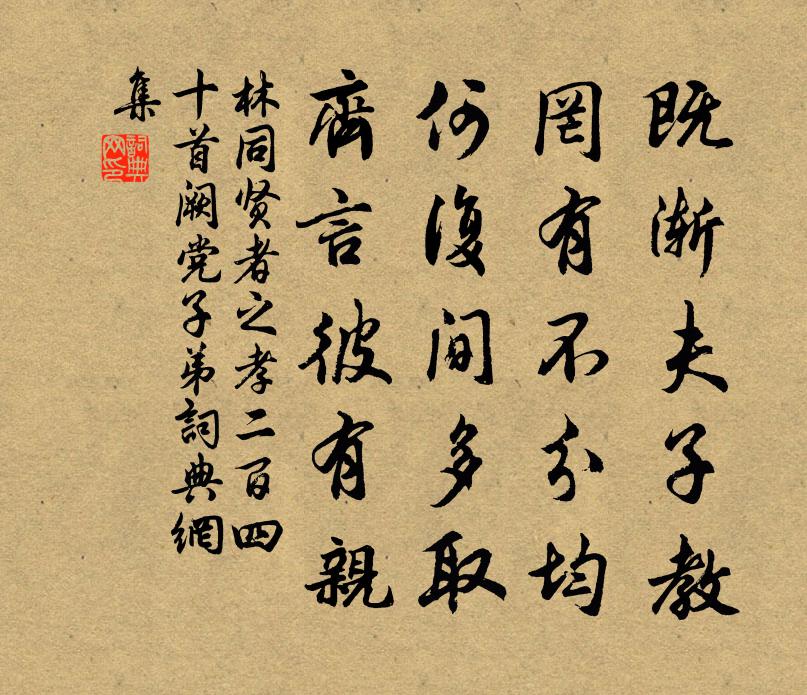 既渐夫子教
罔有不分均
何復間多取
齊言彼有親
林同贤者之孝二百四
十首阙党子弟詞典網
集
詞典網印